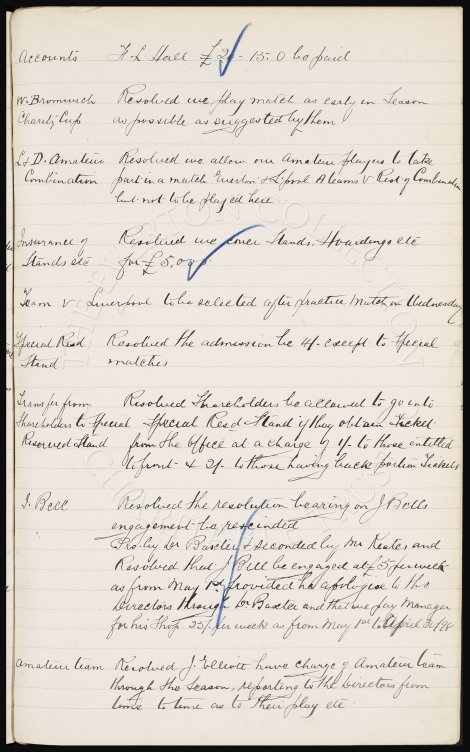 Accounts F. L. Hall £26-15.0 be paid
W. Bromwich Resolved we play match as early in Season
Charity Cup as possible as suggested by them
L & D. Amateur Resolved we allow our Amateur players to take
Combination part in a match Everton & L'pool A teams v Rest of Combination
but not to be played here
Insurance of Resolved we cover Stands. Hoardings etc
Stands etc for £5,000.
Team v Liverpool to be selected after practice Match on Wednesday
Special Resd Resolved the admission be 4/- except to Special
Stand matches
Transfer from Resolved Shareholders be allowed to go into
Shareholders to Special Special Resd Stand if they obtain Ticket
Reserved Stand from the office at a charge of 1/- to those entitled
to front & 2/- to those having back portion Tickets
J. Bell Resolved the resolution bearing on J Bells
engagement be rescinded
Pro. by Dr Baxter & seconded by Mr Keates and
Resolved that J Bell be engaged at £5 per week
as from May 1st provided he apologise to the
Directors through Dr Baxter and that we pay Manager
for his shop 35/- per week as from May 1st to April 30/98
Amateur team Resolved J. Elliott have charge of Amateur team
through the Season, reporting to the Directors from
time to time as to their play etc